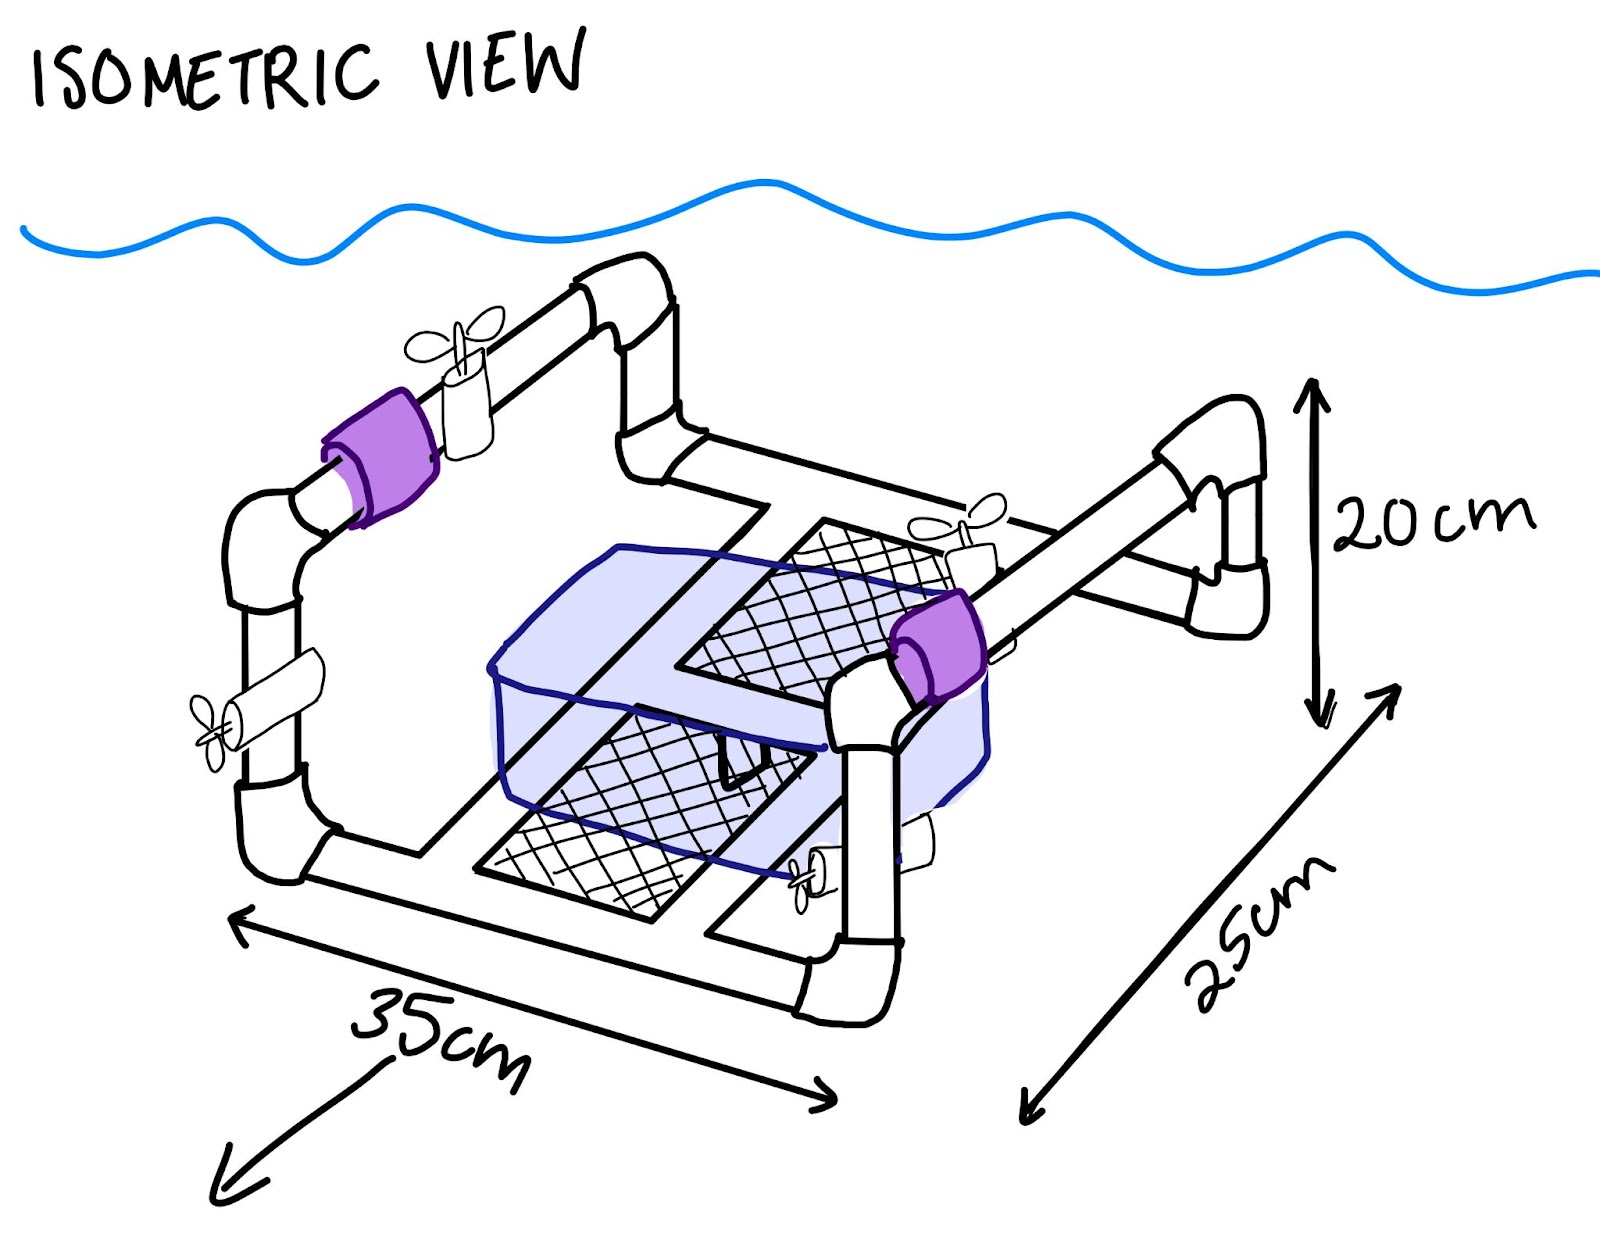 ISOMETRIC VIEW
20cm
25cm
35cm